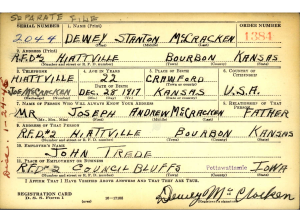 SEPARATE FILE
SERIAL NUMBER 1. NAME (Print) ORDER NUMBER
2044 DEWEY STANTON McCRACKEN 1384
(First) (Middle) (Last)
2. ADDRESS (Print)
R.F.D#2 HIATTVILLE BOURBON KANSAS
3. TELEPHONE 4. AGE IN YEARS 5. PLACE OF BIRTH 6. COUNTRY OF CITIZENSHIP
HIATTVILLE 22 CRAWFORD
DATE OF BIRTH
JOE McCRACKEN DEC. 28 1917 KANSAS U.S.A.
7. NAME OF PERSON WHO WILL ALWAYS KNOW YOUR ADDRESS
MR JOSEPH ANDREW McCRACKEN FATHER
8. ADDRESS OF THAT PERSON
R.F.D#2 HIATTVILLE BOURBON KANSAS
9. EMPLOYER'S NAME
JOHN TREDE
10. PLACE OF EMPLOYMENT OR BUSINESS
RFD#2 COUNCIL BLUFFS Pottawattamie IOWA
I AFFIRM THAT I HAVE VERIFIED ABOVE ANSWERS AND THAT THEY ARE TRUE.
REGISTRATION CARD
D. S. S. Form 1
Dewey McCracken